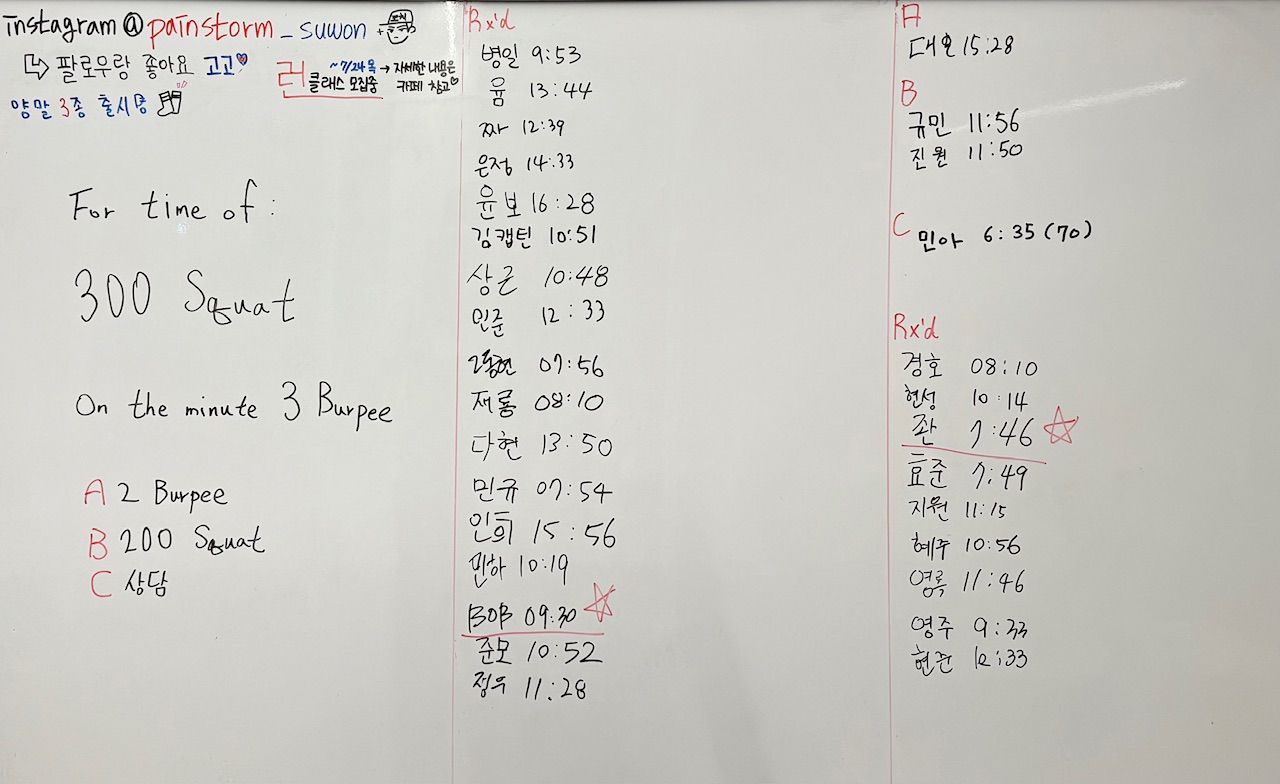 instagram@painstorm_suwon
팔로우랑 좋아요 고고
러 클래스 모집중
~7/24목 → 자세한 내용은 카페 참고
양말 3종 출시중
For time of:
300 Squat
On the minute 3 Burpee
A 2 Burpee
B 200 Squat
C 상담
Rx'd
병일 9:53
윰 13:44
짜 12:39
은정 14:33
윤보 16:28
김캡틴 10:51
상근 10:48
민준 12:33
2동현 07:56
재룡 08:10
다현 13:50
민규 07:54
인희 15:56
민하 10:19
BOB 09:30
준모 10:52
정우 11:28
A
대오 15:28
B
규민 11:56
진원 11:50
C 민아 6:35 (70)
Rx'd
경호 08:10
현성 10:14
좐 7:46
효준 7:49
지원 11:15
혜주 10:56
영록 11:46
영주 9:33
현준 12:33